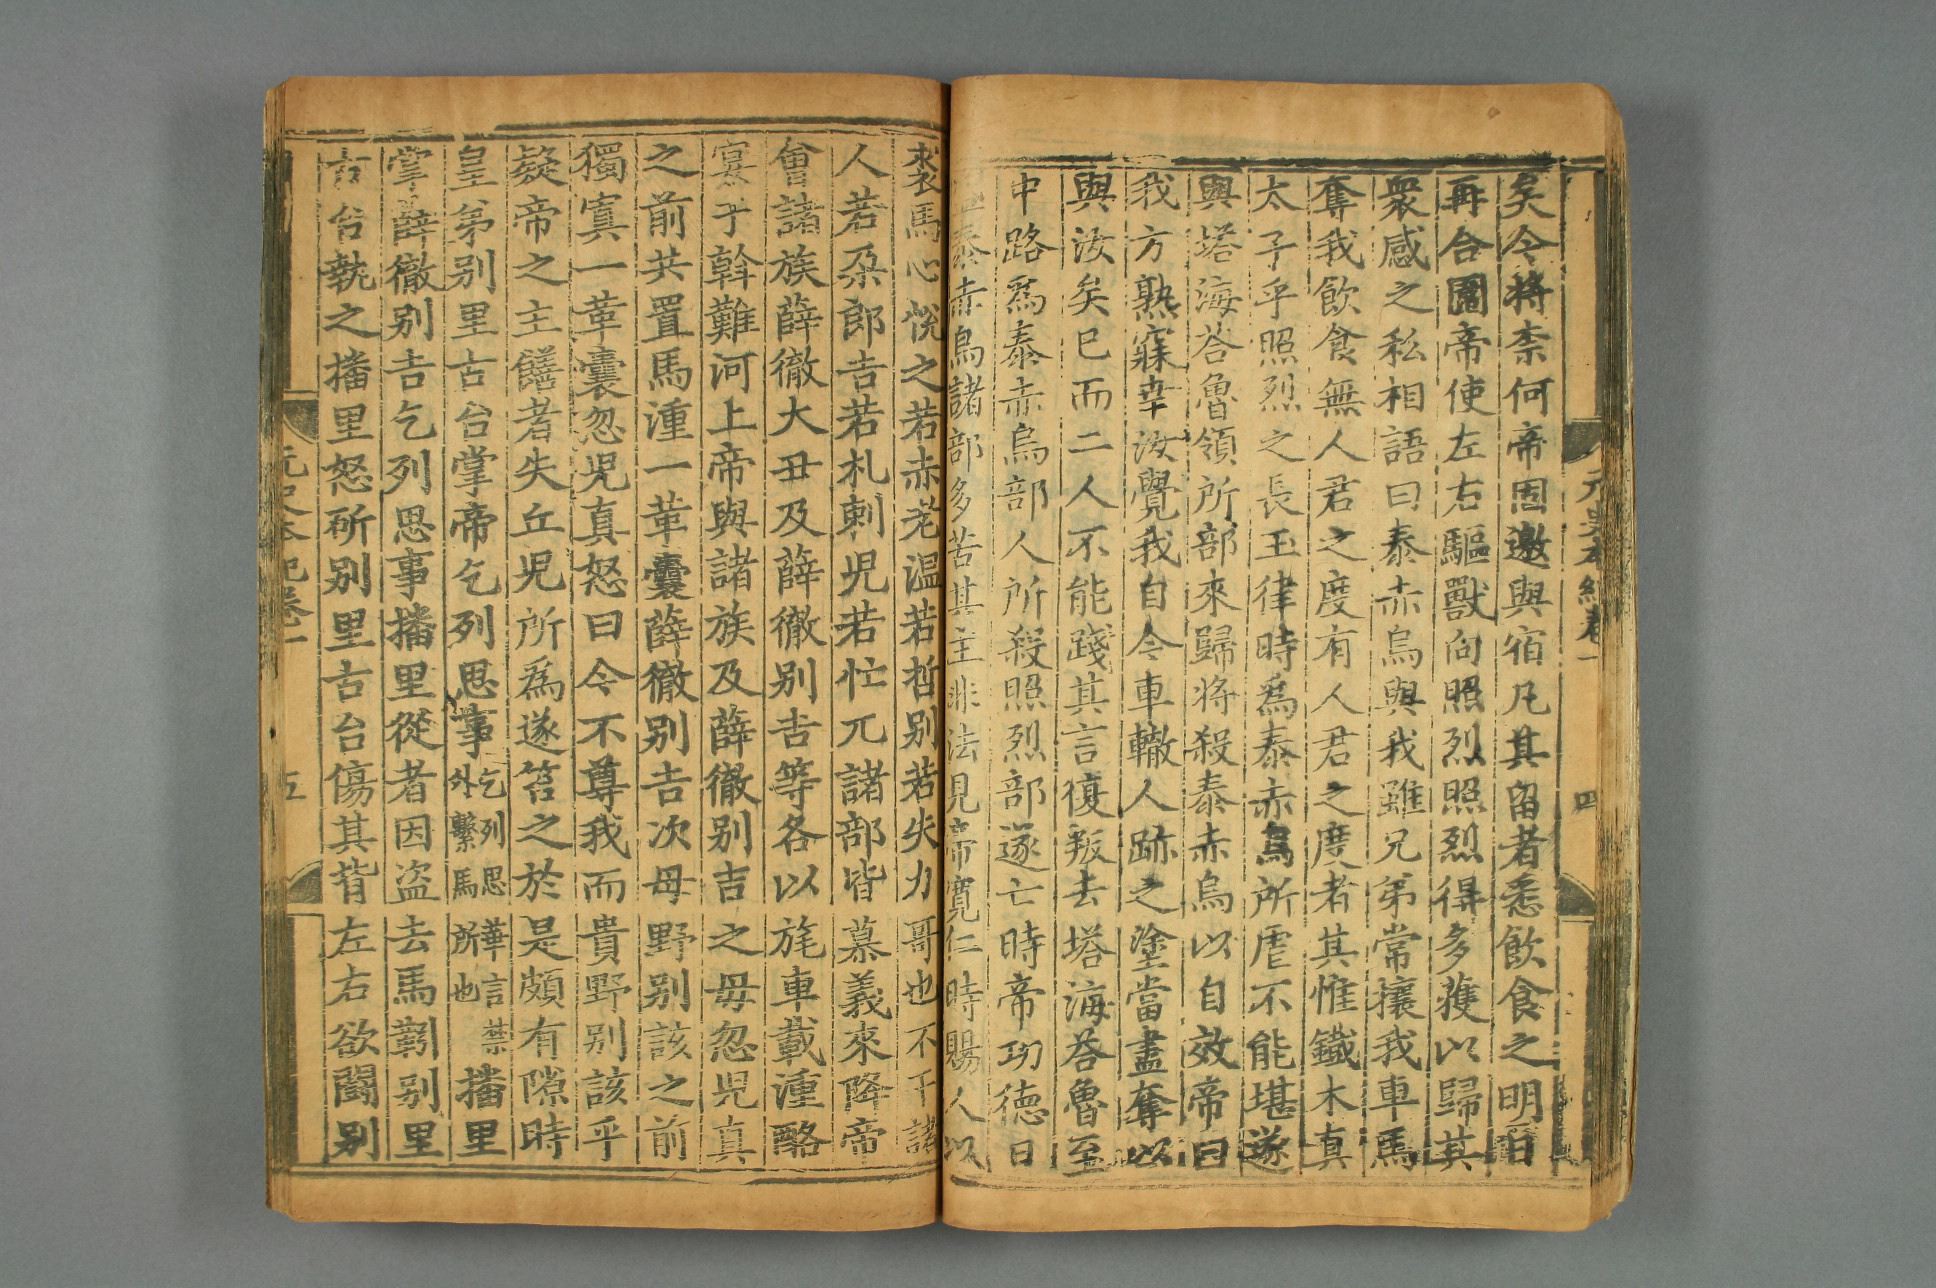 元史本紀卷一
四
矣今將柰何帝因邀與宿凡其留者悉飲食之明日
再合圍帝使左右驅獸向照烈照烈得多獲以歸其
衆感之私相語曰泰赤烏與我雖兄弟常攘我車馬
奪我飲食無人君之度有人君之度者其惟鐵木真
太子乎照烈之長玉律時爲泰赤烏所虐不能堪遂
與塔海答魯領所部來歸將殺泰赤烏以自效帝曰
我方熟寐幸汝覺我自今車轍人跡之塗當盡奪以
與汝矣已而二人不能踐其言復叛去塔海答魯至
中路爲泰赤烏部人所殺照烈部遂亡時帝功德日
泰赤烏諸部多苦其主非法見帝寬仁時賜人以
裘馬心悅之若赤老温若哲别若失力哥也不干諸
人若朶郎吉若札剌兒若忙兀諸部皆慕義來降帝
會諸族薛徹大丑及薛徹别吉等各以旄車載湩酪
宴于斡難河上帝與諸族及薛徹别吉之母忽兒真
之前共置馬湩一革囊薛徹别吉次母野别該之前
獨寘一革囊忽兒真怒曰今不尊我而貴野别該乎
疑帝之主饍者失丘兒所爲遂笞之於是頗有隙時
皇弟别里古台掌帝乞列思事乞列思華言禁外繫馬所也播里
掌薛徹别吉乞列思事播里從者因盗去馬靷别里
古台執之播里怒斫别里古台傷其背左右欲鬭别
元史本紀卷一
五